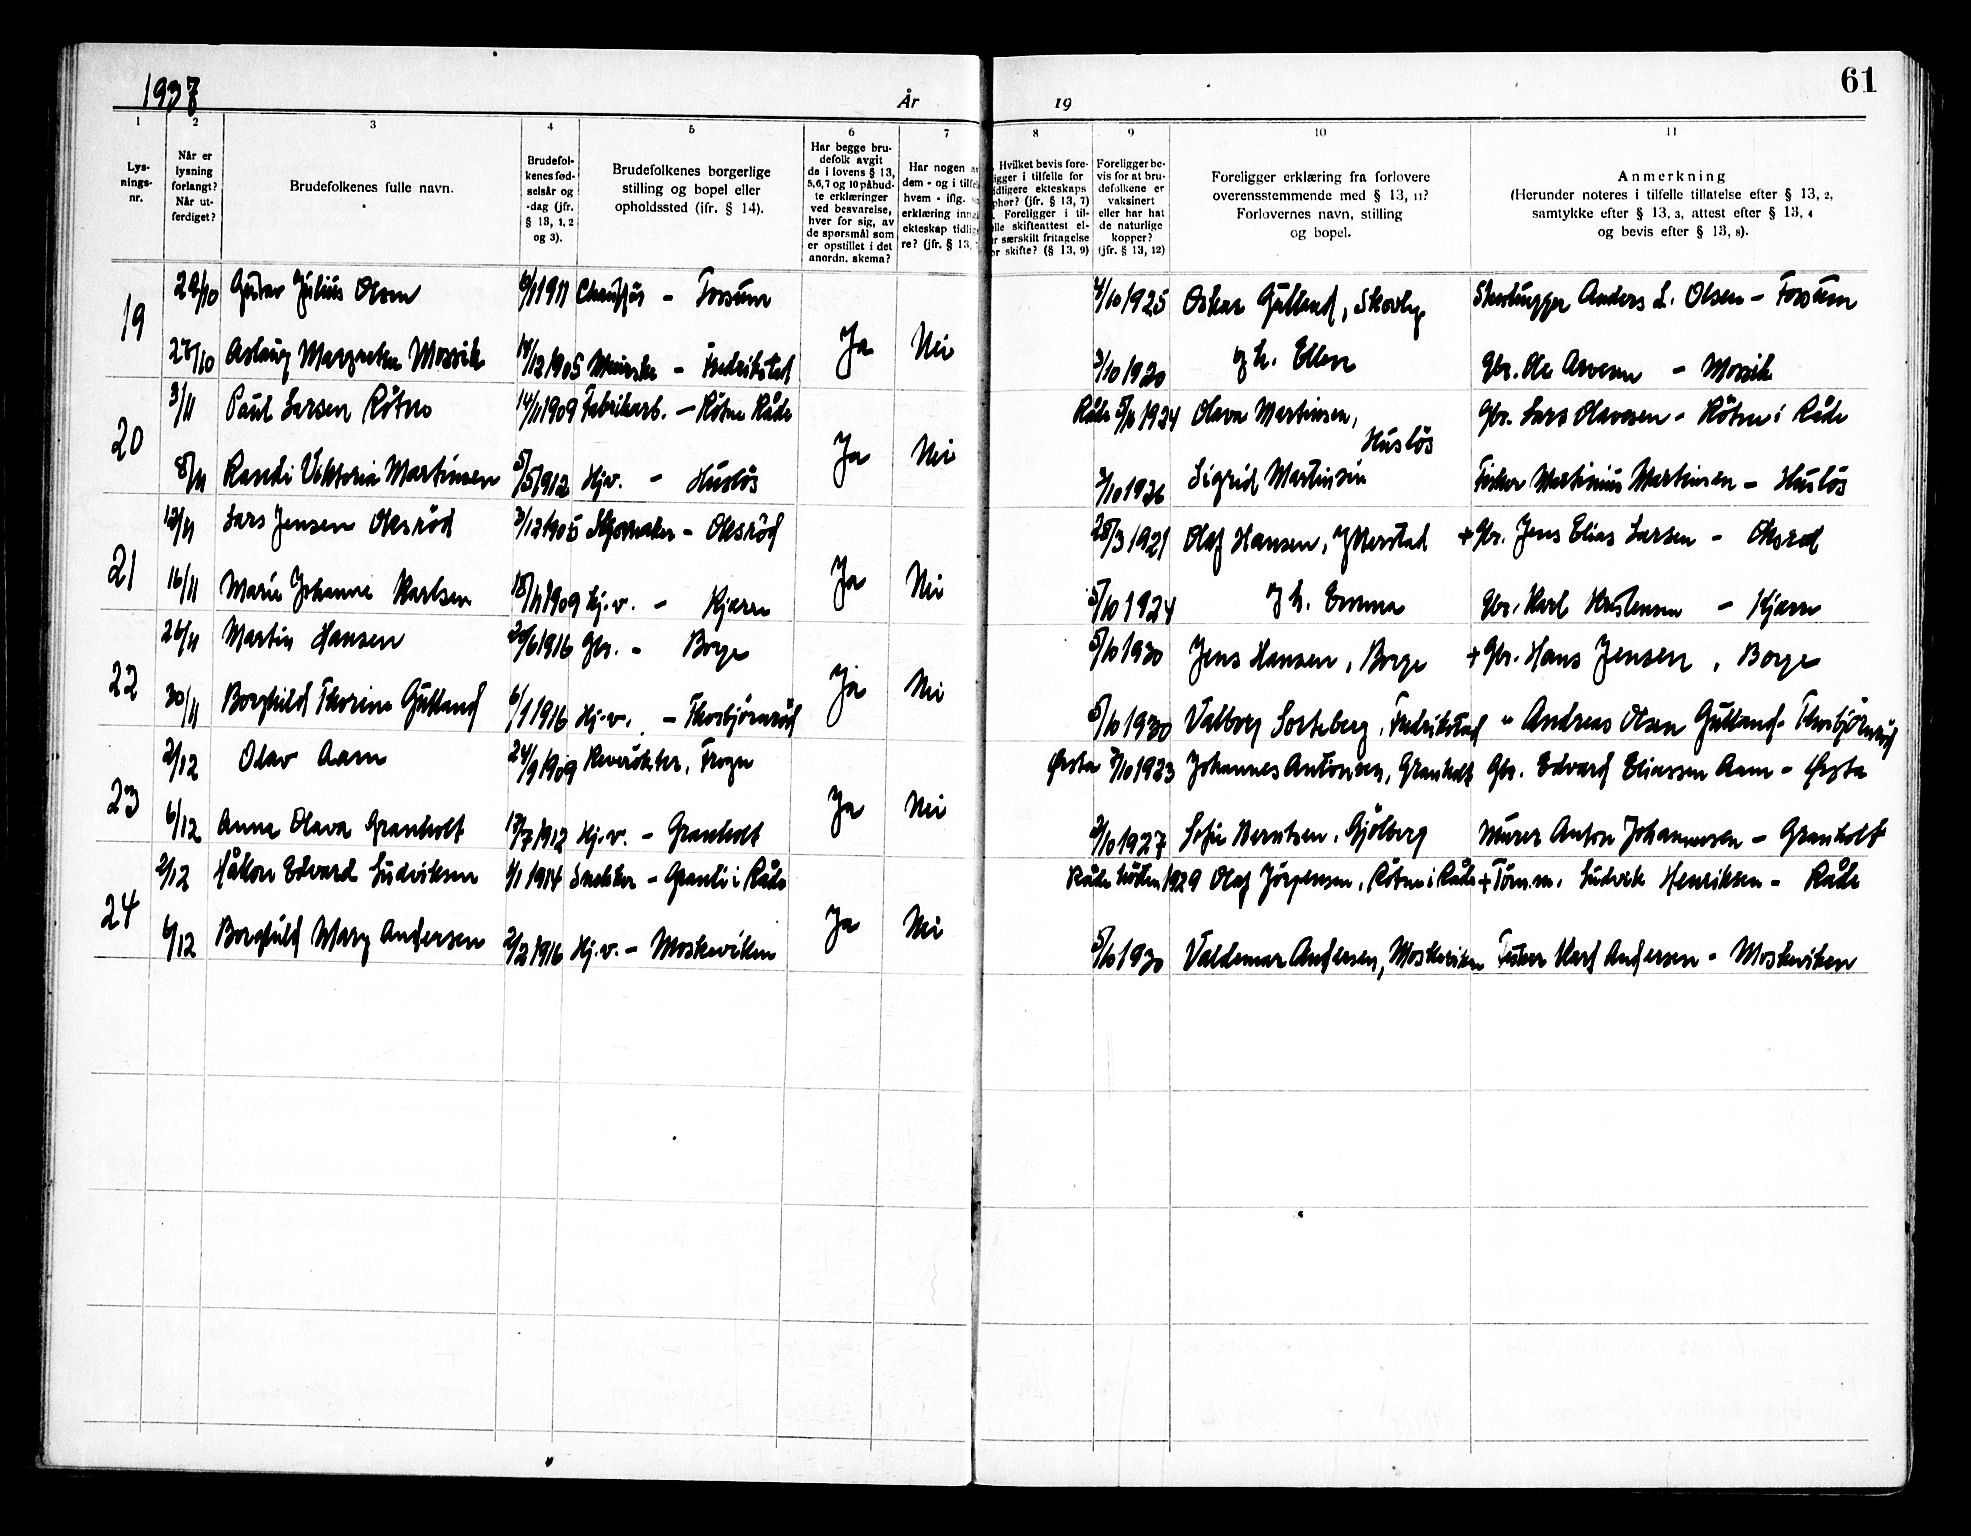 1937 År 19 61
1 2 3 4 5 6 7 8 9 10 11
Lys-
nings-
nr.
Når er
lysning
forlangt?
Når ut-
ferdiget?
Brudefolkenes fulle navn.
Brudefol-
kenes fød-
selsår og
-dag (jfr.
§ 13, 1, 2
og 3).
Brudefolkenes borgerlige
stilling og bopel eller
opholdssted (ifr. § 14).
Har begge bru-
defolk avgit
de i lovens § 13,
5,6,7 og 10 påbud-
te erklæringer
ved besvarelse,
hver for sig, av
de spørsmål som
er opstillet i det
anordn. skema?
Har nogen
dem - og i
hvem - iflg.
erklæring
ekteskap
re? (jfr. § 13,
Hvilket bevis fore-
ligger i tilfelle for
tidligere ekteskaps
ophør? (jfr. § 13, 7)
Foreligger i til-
felle skifteattest el-
særskilt fritagelse
for skifte? (§ 13, 9)
Foreligger be-
vis for at bru-
defolkene er
vaksinert
eller har hat
de naturlige
kopper?
(jfr. § 13, 12)
Foreligger erklæring fra forlovere
overensstemmende med § 13, 11?
Forlovernes navn, stilling
og bopel.
Anmerkning
(Herunder noteres i tilfelle tillatelse efter § 13, 2,
samtykke efter § 13, 3, attest efter § 13, 4
og bevis efter § 13, 8).
19 Ja Nei
Gustav Julius Olsen 6/1 1911 Chauffør - Fossum 4/10 1925 Oskar Gulland, Skovly Anders L. Olsen - Fossum
28/10 Aslaug Margrethe Mossik 14/12 1905 - Fredrikstad 3/10 1920 og h. Ellen Gbr. Ole - Mossik
20 Ja Nei
3/11 Paul Larsen Rötne 14/11 1909 Fabrikarb. - Rötne Råde Råde 5/6 1924 Olava Martinsen, Huslös Gbr. Lars Olavesen - Rötne i Råde
8/11 Randi Viktoria Martinsen 5/5 1912 Hj.v. - Huslös 1926 Sigrid Martinsen Fisker Martinius Martinsen - Huslös
21 Ja Nei
12/11 Lars Jensen Oksröd 3/12 1905 Skomaker - Oksröd 28/3 1921 Olaf Hansen, + Gbr. Jens Elias Larsen - Oksröd
16/11 Marie Johanne Karlsen 18/11 1909 Hj.v. - Kjærre 5/10 1924 og h. Emma Gbr. Karl Kristensen - Kjærre
22 Ja Nei
26/11 Martin Hansen 20/6 1916 Gbr. - Borge 5/10 1930 Jens Hansen, Borge + Gbr. Hans Jensen, Borge
30/11 Borghild Thorine Gulland 6/1 1916 Hj.v. - Thorbjörnröd 5/10 1930 Valborg Sorteberg, Fredrikstad " Andreas Olsen Gulland - Thorbjörnröd
23 Ja Nei
2/12 Olav Aam 24/9 1909 Revevokter, Frogn Ørsta 1923 Johannes Antonsen, Granholt Gbr. Edvard Eliassen Aam - Ørsta
6/12 Anna Olava Granholt 13/7 1912 Hj.v. - Granholt 3/10 1927 Sofie Berntsen, Gjölberg Murer Anton Johannesen - Granholt
24 Ja Nei
2/12 Håkon Edvard Ludviksen 4/1 1914 Snekker - Granli i Råde Råde hösten 1929 Olaf Jörgensen, Rötne i Råde + Töm.m. Ludvik Henriksen - Råde
6/12 Borghild Mary Andersen 2/2 1916 Hj.v. - Moskeviken 5/10 1930 Valdemar Andersen, Moskeviken Fisker Karl Andersen - Moskeviken